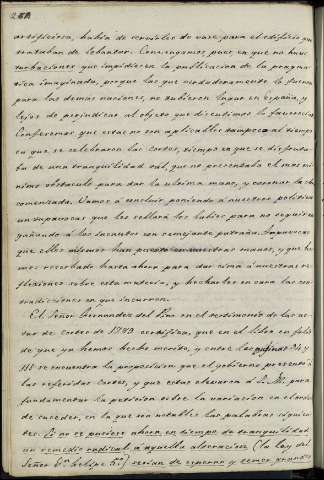 artificiosa, había de servirles de vase para el edificio que
trataban de lebantar. Convengamos pues, en que no huvo
turbaciones que impidiesen la publicacion de la pragma-
tica imaginada, porque las que verdaderamente lo fueron
para las demas naciones, no tubieron lugar en España, y
lejos de perjudicar al objeto que discutimos lo favorecian.
Confesemos que estas no son aplicables tampoco al tiempo
en que se celebraron las cortes, tiempo en que se disfruta-
ba de una tranquilidad tal, que no presentaba el mas mi-
nimo obstaculo para dar la ultima mano, y coronar la obra
comenzada. Vamos á concluir poniendo á nuestros politicos
un tapavocas que les sellará los labios para no seguir en-
gañando á los incautos con semejante patraña. Armas
que ellos mismos han puesto en nuestras manos, y que he-
mos reservado hasta ahora para dar cima á nuestras re-
flexiones sobre esta materia, y hecharles en cara las con-
tradicciones en que incurren.
El Señor Fernandez del Pino en el testimonio de las ac-
tas de cortes de 1789 certifica, que en el libro en folio
de que ya hemos hecho merito, y entre las paginas
111 se encuentra la proposicion que el gobierno presentó á
las referidas Cortes, y que estas elevaron á S. M. para
fundamentar la peticion sobre la variacion en el orden
de suceder, en la que son notables las palabras siguien-
tes. Si no se pusiese ahora en tiempo de tranquilidad
un remedio radical á aquella alteracion (la ley del
Señor Dn. Felipe 5º) serian de esperar y temer grandes